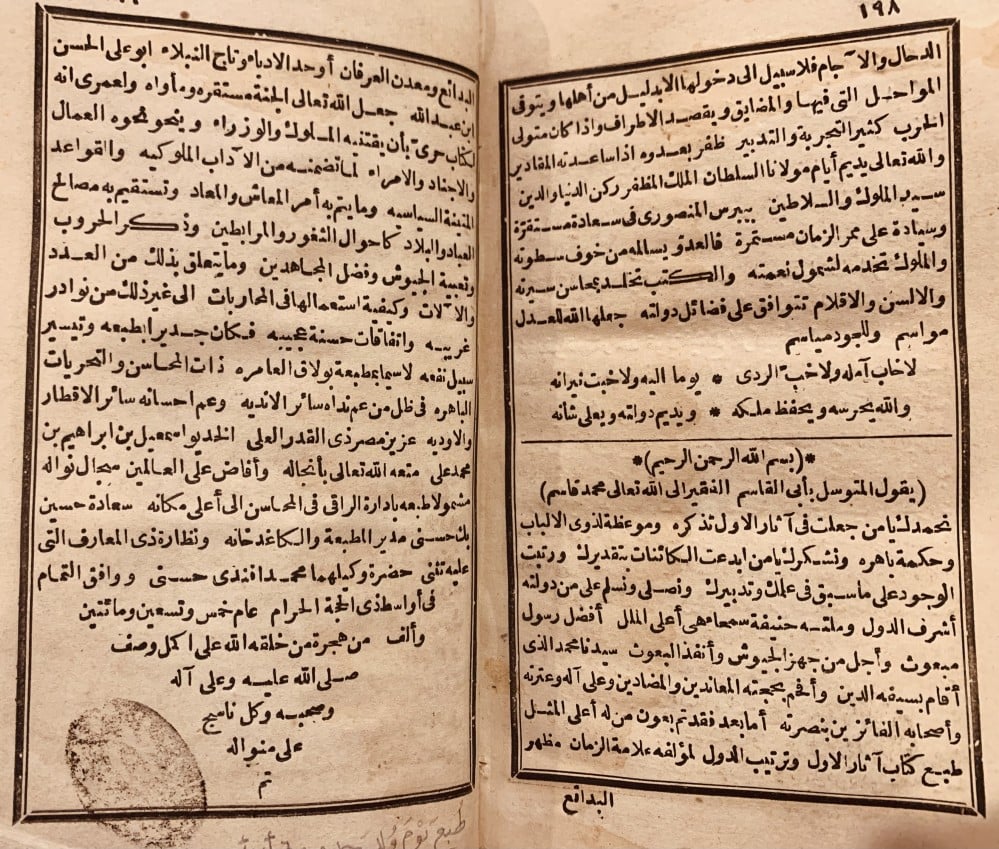 ١٩٨
الدحال والآجام فلا سبيل الى دخولها الا بدليل من أهلها ويتوقى
المواحل التى فيها والمضايق ويقصد الاطراف واذا كان متولى
الحرب كثير التجربة والتدبير ظفر بعدوه اذا ساعدته المقادير
والله تعالى يديم أيام مولانا السلطان الملك المظفر ركن الدنيا والدين
سيد الملوك والسلاطين بيبرس المنصورى فى سعادة مستقرّة
وسيادة على ممر الزمان مستمرة فالعدوّ يسالمه من خوف سطوته
والملوك تخدمه لشمول نعمته والكتب تخلد بمحاسن سيرته
والالسن والاقلام تتوافق على فضائل دولته جعلها الله للعدل
مواسم وللجود مياسم
لا خاب آمله ولا خبّ الردى * يوما اليه ولا خبت نيرانه
والله يحرسه ويحفظ ملكه * ويديم دولته ويعلى شانه
*(بسم الله الرحمن الرحيم)*
(يقول المتوسل بأبى القاسم الفقير الى الله تعالى محمد قاسم)
نحمدك يا من جعلت فى آثار الاول تذكره وموعظة لذوى الالباب
وحكمة باهره ونشكرك يا من ابدعت الكائنات بتقديرك ورتبت
الوجود على ما سبق فى علمك وتدبيرك ونصلى ونسلم على من دولته
أشرف الدول وملته حنيفة سمعاء هى أعلى الملل أفضل رسول
مبعوث وأجل من جهز الجيوش وأنفذ البعوث سيدنا محمد الذى
أقام بسيفه الدين وأفحم بحجته المعاندين والمضادين وعلى آله وعترته
وأصحابه الفائزين بنصرته أما بعد فقد تم بعون من له أعلى المثل
طبع كتاب آثار الاول وترتيب الدول لمؤلفه علامة الزمان مظهر
البدائع
البدائع ومعدن العرفان أوحد الادباء وتاج النبلاء ابو على الحسن
ابن عبد الله جعل الله تعالى الجنة مستقره ومأواه ولعمرى انه
لكتاب حرىّ بأن يقتنيه الملوك والوزراء وينحو نحوه العمال
والاجناد والامراء لما تضمنه من الآداب الملوكيه والقواعد
المتينة السياسيه وما يتم به أمر المعاش والمعاد وتستقيم به مصالح
العباد والبلاد كاحوال الثغور والمرابطين وذكر الحروب
وتعبية الجيوش وفضل المجاهدين وما يتعلق بذلك من العدد
والآلات وكيفية استعمالها فى المحاربات الى غير ذلك من نوادر
غريبه واتفاقات حسنة عجيبه فكان جديرا بطبعه وتيسير
سبيل نفعه لا سيما بمطبعة بولاق العامره ذات المحاسن والتحريات
الباهره فى ظل من عم نداه سائر الانديه وعم احسانه سائر الاقطار
والاوديه عزيز مصر ذى القدر العلى الخديو اسمعيل بن ابراهيم بن
محمد على متعه الله تعالى بأنجاله وأفاض على العالمين سجال نواله
مشمولا طبعه بادارة الراقى فى المحاسن الى أعلى مكانه سعادة حسين
بك حسنى مدير المطبعة والكاغدخانه ونظارة ذى المعارف التى
عليه تثنى حضرة وكيلهما محمد افندى حسنى ووافق التمام
فى أواسط ذى الحجة الحرام عام خمس وتسعين ومائتين
وألف من هجرة من خلقه الله على اكمل وصف
صلى الله عليه وعلى آله
وصحبه وكل ناسج
على منواله
تم
طبع